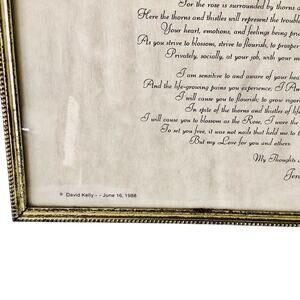 For the rose is surrounded by thorns a
Here the thorns and thistles will represent the troubl
Your heart, emotions, and feelings being pric
As you strive to blossom, strive to flourish, to prosper
Privately, socially, at your job, with your m
I am sensitive to and aware of your hear
And the life-growing pains you experience; I Am
I will cause you to flourish; to grow rigoro
In spite of the thorns and thistles of life
I will cause you to blossom as the Rose, I wore the
To set you free, it was not nails that held me to t
But my Love for you and others.
My Thoughts
Jesu
© David Kelly - - June 16, 1988